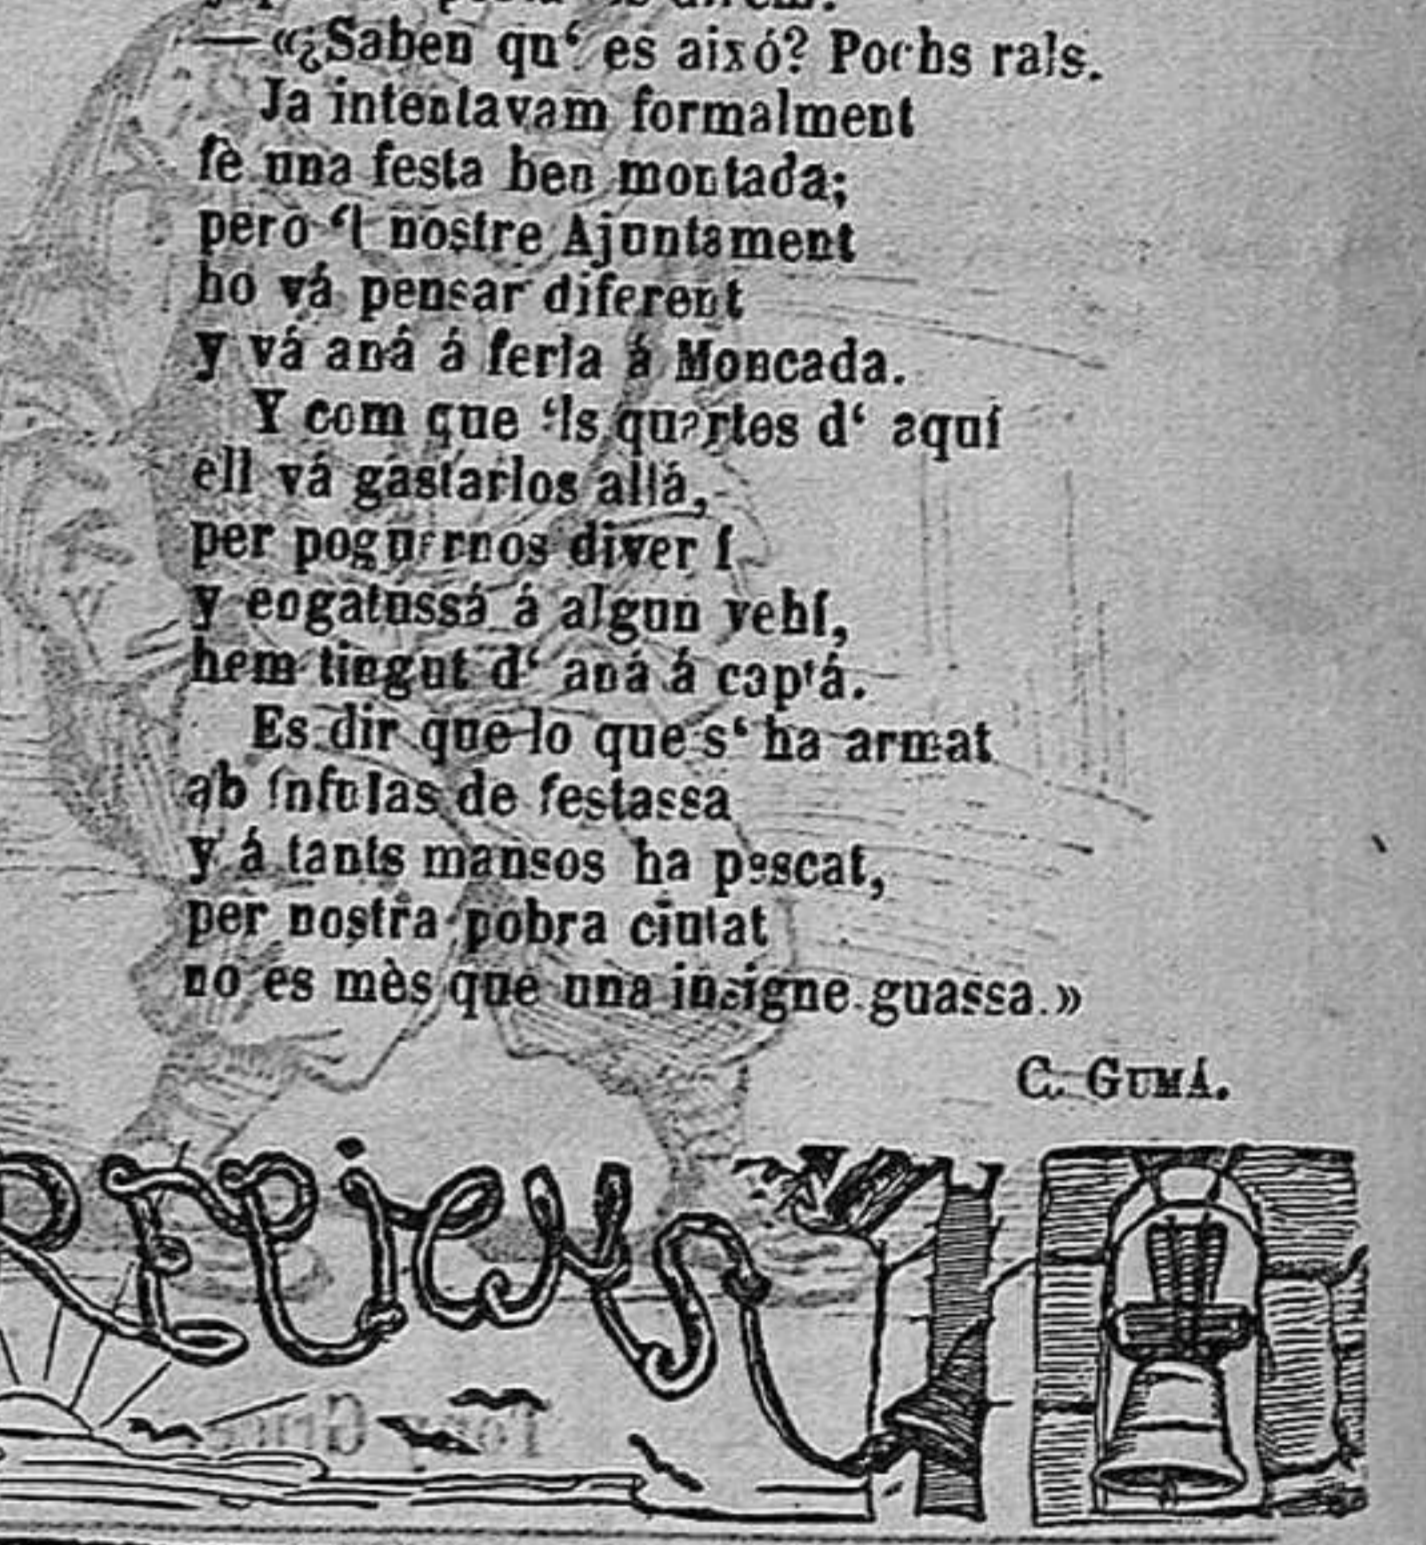 —«¿Saben qu‘ es aixó? Pochs rals.
Ja intentavam formalment
fè una festa ben montada;
pero ‘l nostre Ajuntament
ho vá pensar diferent
y vá aná á ferla á Moncada.
Y com que ‘ls quartos d‘ aquí
ell vá gastarlos allá,
per poguernos divertí
y engatussá á algun vehí,
hem tingut d‘ aná á captá.
Es dir que lo que s‘ ha armat
ab ínfulas de festassa
y á tants mansos ha pescat,
per nostra pobra ciutat
no es mès que una insigne guassa.»
C. GUMÁ.
REPICHS